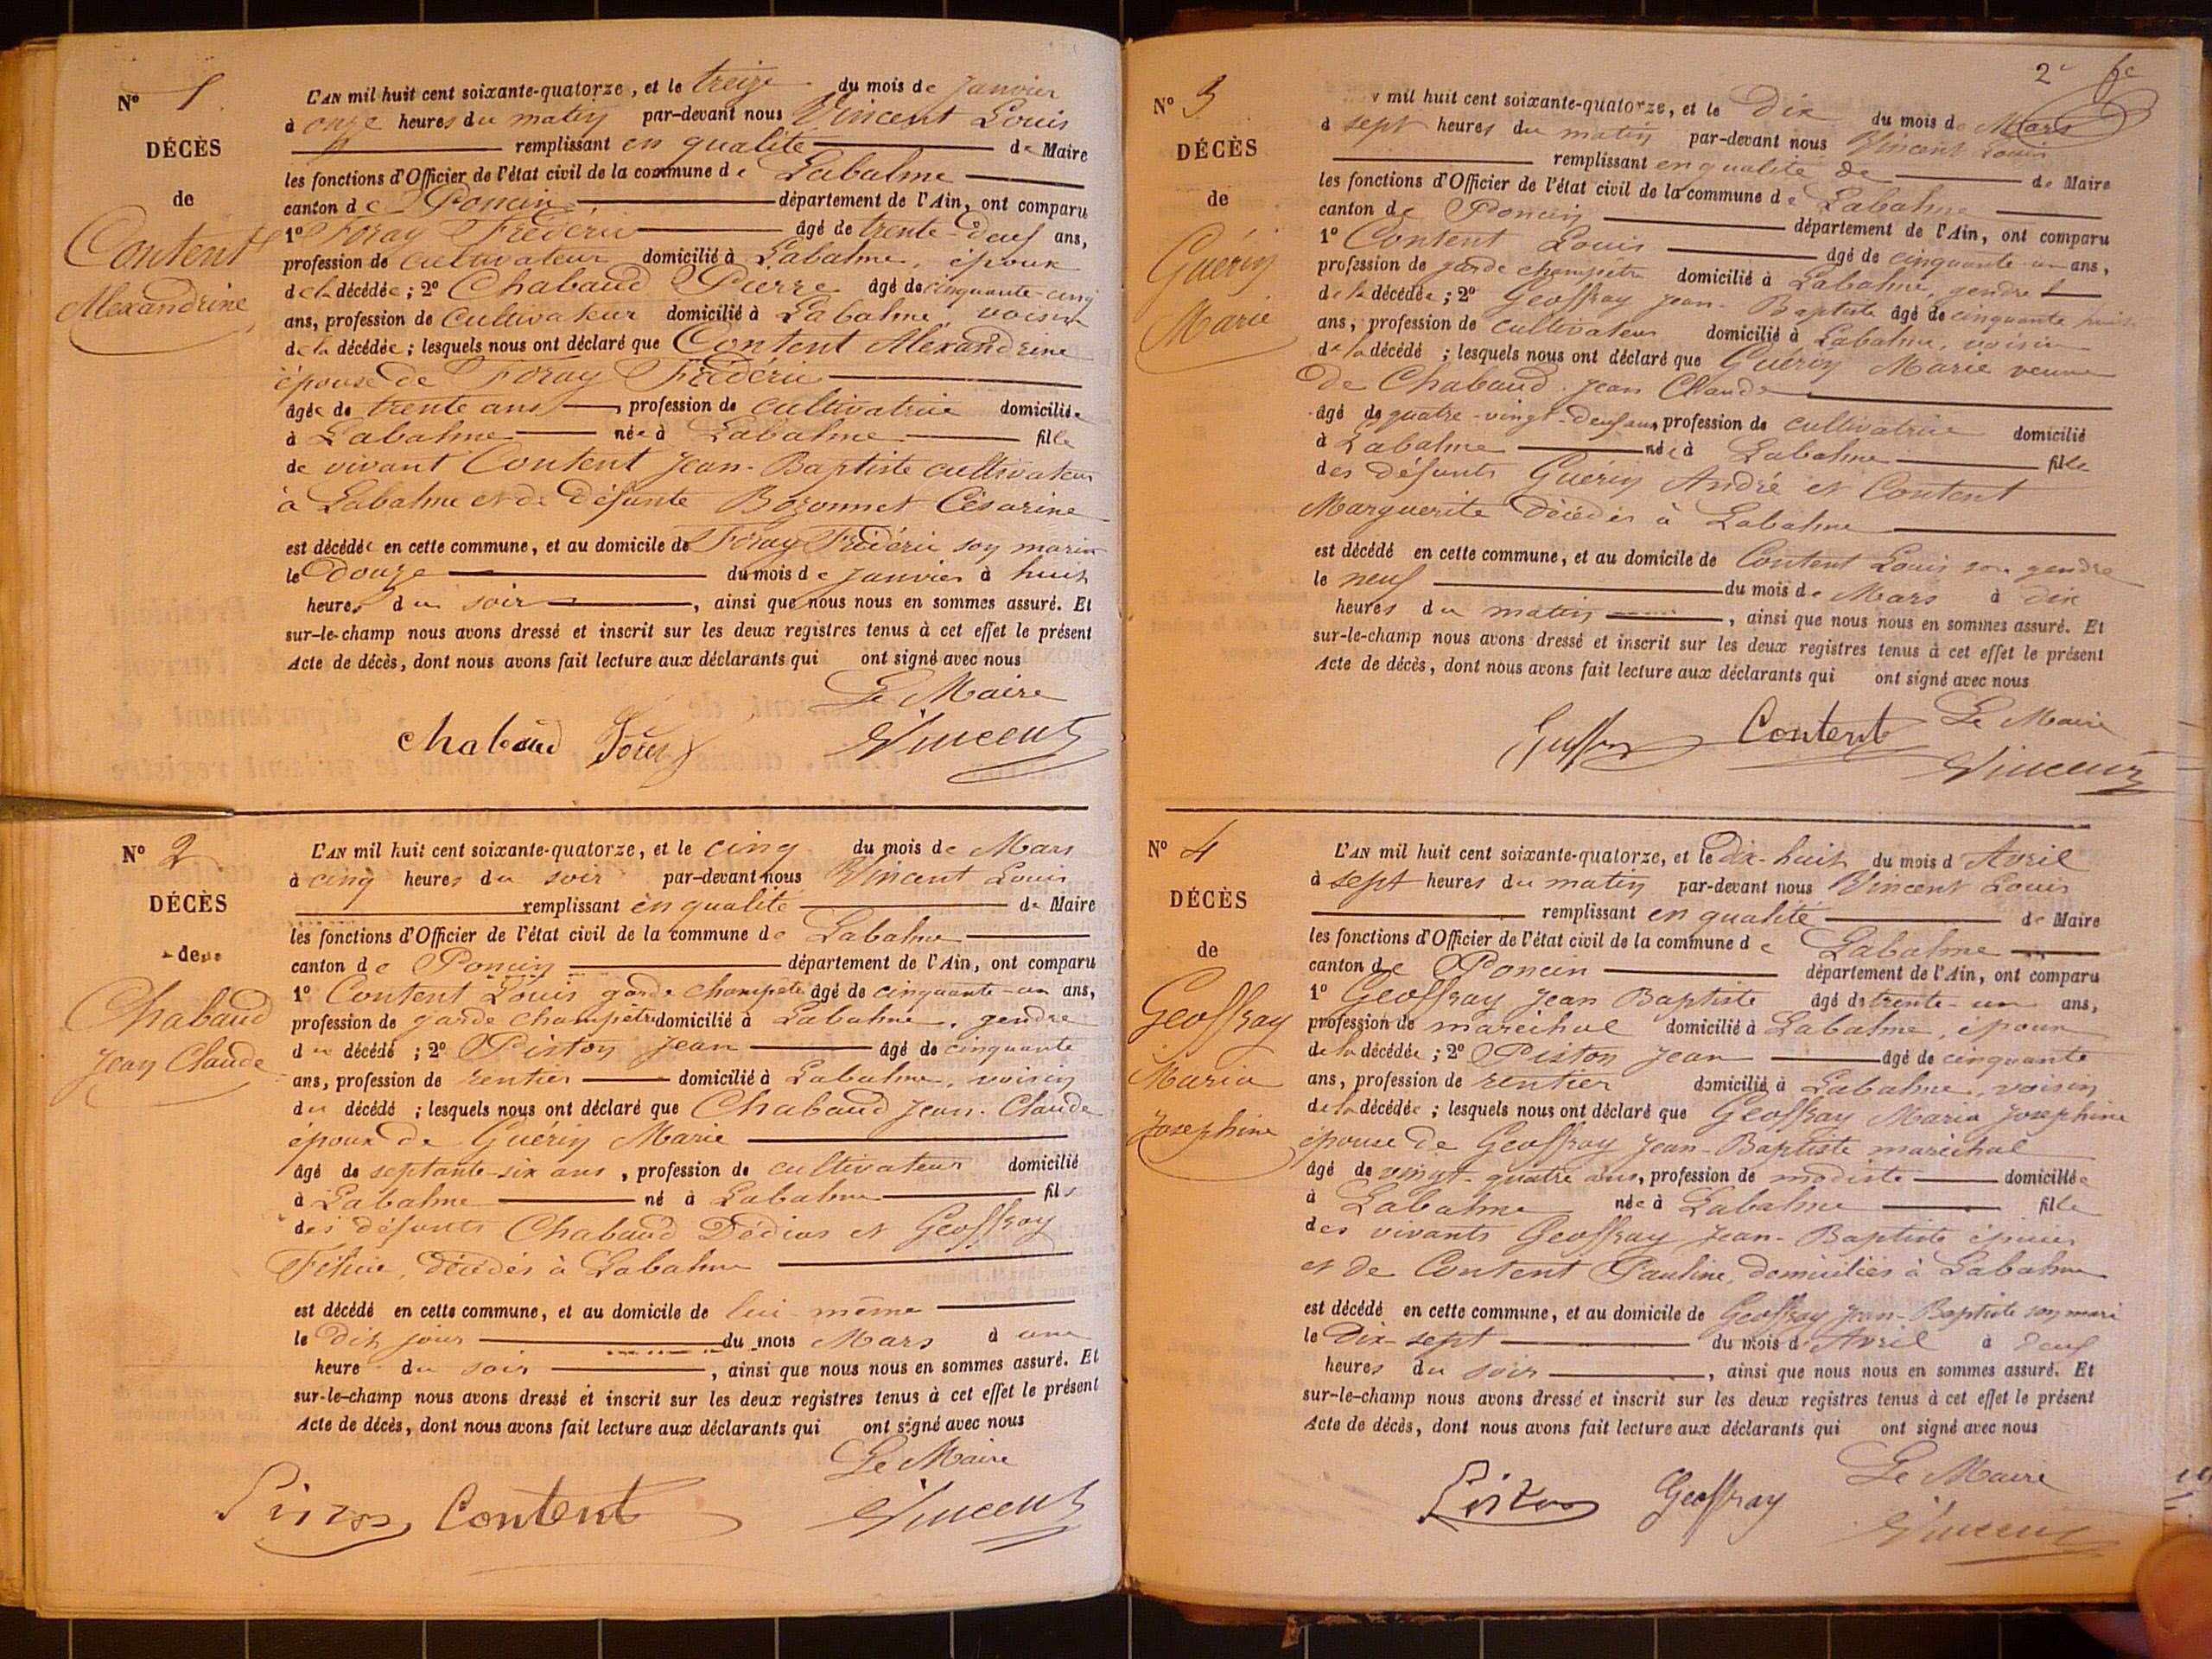 N° 1
DÉCÈS
de
Content
Alexandrine
L'AN mil huit cent soixante-quatorze, et le treize du mois de Janvier
à onze heures du matin par-devant nous Vincent Louis
remplissant en qualité de Maire
les fonctions d'Officier de l'état civil de la commune de Labalme
canton de Poncin département de l'Ain, ont comparu
1° Foray Frédéric âgé de trente-deux ans,
profession de cultivateur domicilié à Labalme, époux
de la décédée ; 2° Chabaud Pierre âgé de cinquante-cinq
ans, profession de cultivateur domicilié à Labalme, voisin
de la décédée ; lesquels nous ont déclaré que Content Alexandrine
épouse de Foray Frédéric
âgée de trente ans, profession de cultivatrice domiciliée
à Labalme née à Labalme fille
de vivant Content Jean-Baptiste cultivateur
à Labalme et de défunte Bozonnet Césarine
est décédée en cette commune, et au domicile de Foray Frédéric son mari
le Douze du mois de Janvier à huit
heures du soir, ainsi que nous nous en sommes assuré. Et
sur-le-champ nous avons dressé et inscrit sur les deux registres tenus à cet effet le présent
Acte de décès, dont nous avons fait lecture aux déclarants qui ont signé avec nous
Le Maire
Chabaud Foray Vincent
N° 2
DÉCÈS
de
Chabaud
Jean Claude
L'AN mil huit cent soixante-quatorze, et le cinq du mois de Mars
à cinq heures du soir par-devant nous Vincent Louis
remplissant en qualité de Maire
les fonctions d'Officier de l'état civil de la commune de Labalme
canton de Poncin département de l'Ain, ont comparu
1° Content Louis garde champetre âgé de cinquante-un ans,
profession de garde champêtre domicilié à Labalme, gendre
du décédé ; 2° Piston Jean âgé de cinquante
ans, profession de rentier domicilié à Labalme, voisin
du décédé ; lesquels nous ont déclaré que Chabaud Jean-Claude
époux de Guérin Marie
âgé de septante-six ans, profession de cultivateur domicilié
à Labalme né à Labalme fils
des défunts Chabaud Dédius et Geoffray
décédés à Labalme
est décédé en cette commune, et au domicile de lui-même
le dit jour du mois Mars à une
heure du soir, ainsi que nous nous en sommes assuré. Et
sur-le-champ nous avons dressé et inscrit sur les deux registres tenus à cet effet le présent
Acte de décès, dont nous avons fait lecture aux déclarants qui ont signé avec nous
Le Maire
Piston Content Vincent
2e
N° 3
DÉCÈS
de
Guérin
Marie
mil huit cent soixante-quatorze, et le Dix du mois de Mars
à sept heures du matin par-devant nous Vincent Louis
remplissant en qualité de de Maire
les fonctions d'Officier de l'état civil de la commune de Labalme
canton de Poncin département de l'Ain, ont comparu
1° Content Louis âgé de cinquante-un ans,
profession de garde champêtre domicilié à Labalme, gendre
de la décédée ; 2° Geoffray Jean-Baptiste âgé de cinquante huit
ans, profession de cultivateur domicilié à Labalme, voisin
de la décédé ; lesquels nous ont déclaré que Guérin Marie veuve
de Chabaud Jean Claude
âgé de quatre-vingt-deux ans, profession de cultivatrice domicilié
à Labalme née à Labalme fille
des défunts Guérin André et Content
Marguerite décédés à Labalme
est décédé en cette commune, et au domicile de Content Louis son gendre
le neuf du mois de Mars à dix
heures du matin, ainsi que nous nous en sommes assuré. Et
sur-le-champ nous avons dressé et inscrit sur les deux registres tenus à cet effet le présent
Acte de décès, dont nous avons fait lecture aux déclarants qui ont signé avec nous
Le Maire
Content Vincent
N° 4
DÉCÈS
de
Geoffray
Maria
Josephine
L'AN mil huit cent soixante-quatorze, et le dix-huit du mois d'Avril
à sept heures du matin par-devant nous Vincent Louis
remplissant en qualité de Maire
les fonctions d'Officier de l'état civil de la commune de Labalme
canton de Poncin département de l'Ain, ont comparu
1° Geoffray Jean Baptiste âgé de trente-un ans,
profession de maréchal domicilié à Labalme, époux
de la décédée ; 2° Piston Jean âgé de cinquante
ans, profession de rentier domicilié à Labalme, voisin
de la décédée ; lesquels nous ont déclaré que Geoffray Maria Josephine
épouse de Geoffray Jean-Baptiste maréchal
âgé de vingt-quatre ans, profession de modiste domiciliée
à Labalme née à Labalme fille
des vivants Geoffray Jean-Baptiste épicier
et de Content Pauline, domiciliés à Labalme
est décédé en cette commune, et au domicile de Geoffray Jean-Baptiste son mari
le Dix-sept du mois d'Avril à deux
heures du soir, ainsi que nous nous en sommes assuré. Et
sur-le-champ nous avons dressé et inscrit sur les deux registres tenus à cet effet le présent
Acte de décès, dont nous avons fait lecture aux déclarants qui ont signé avec nous
Le Maire
Piston Geoffray Vincent